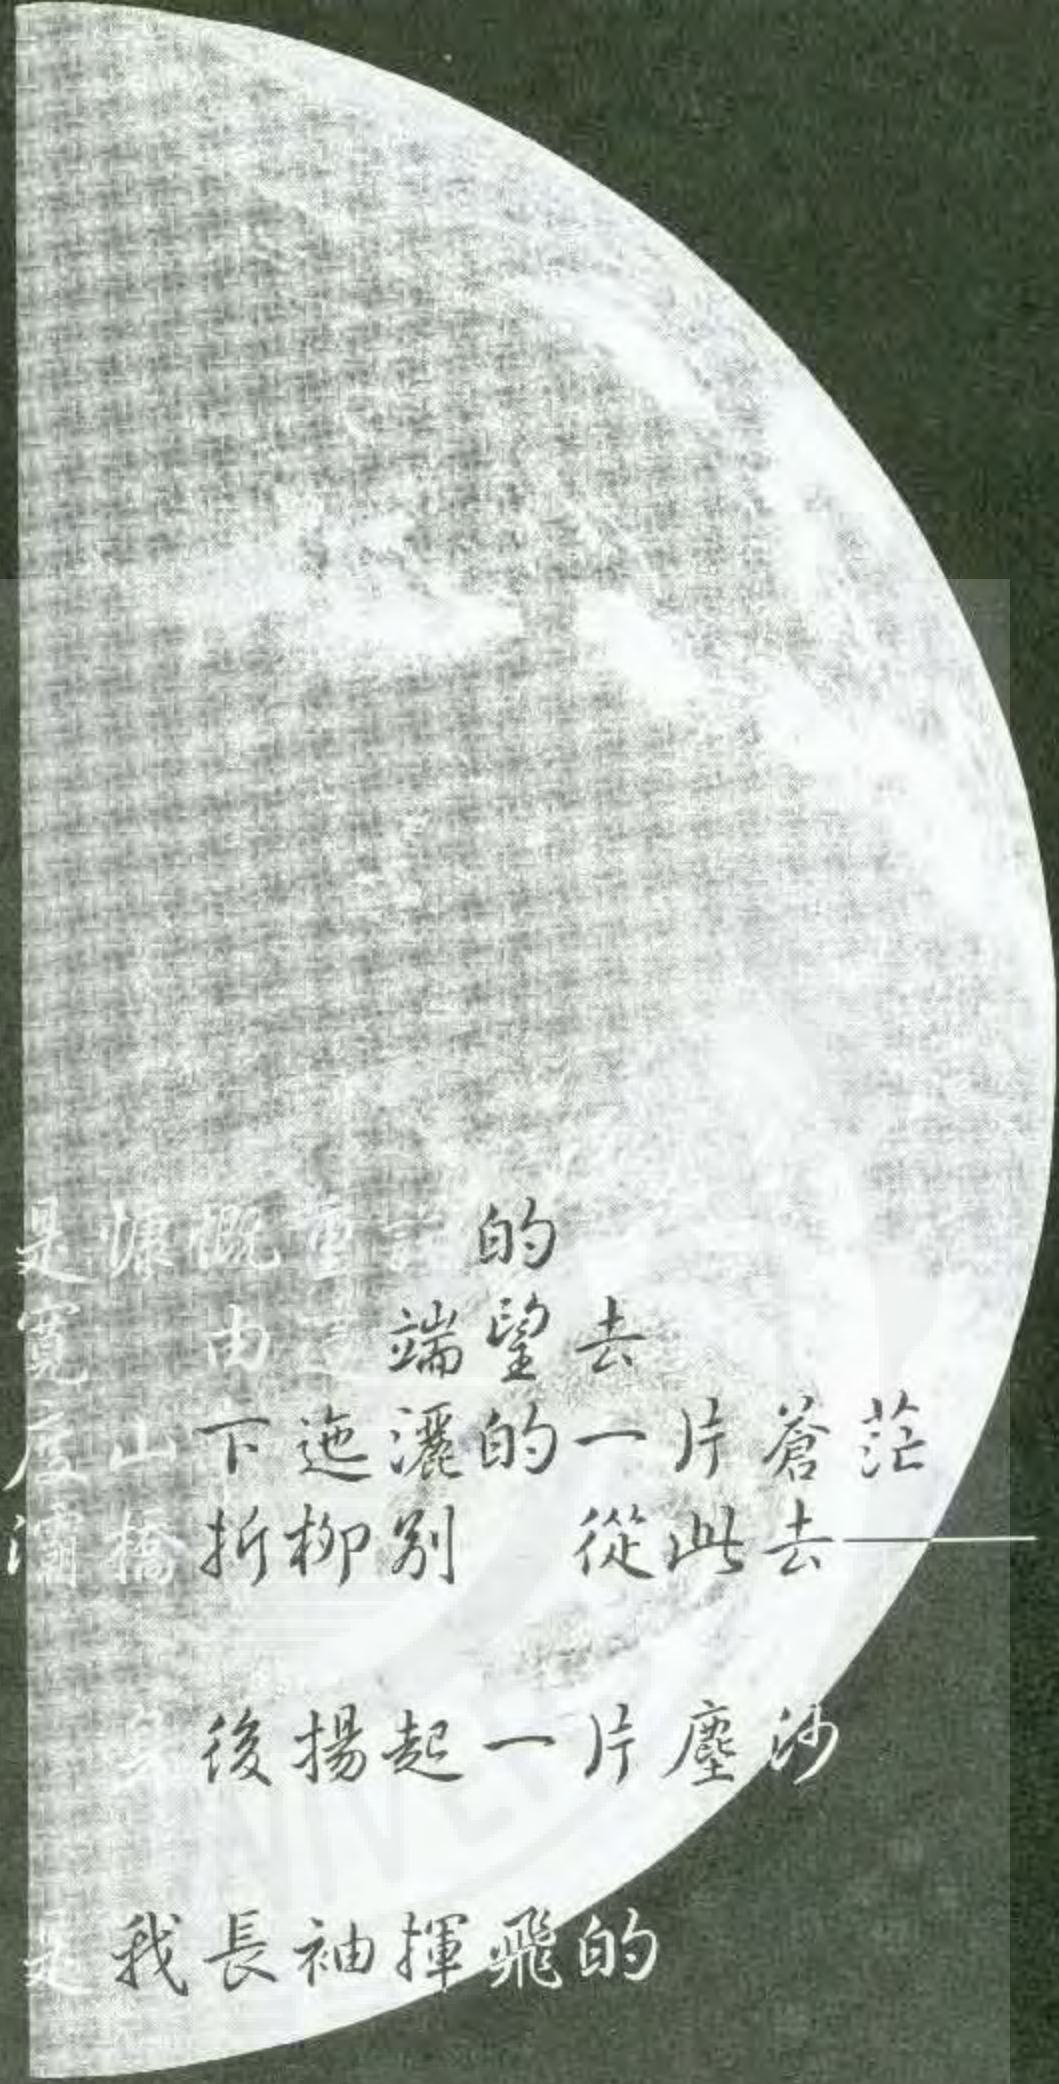 是慷慨重的
寬 由 端望去
度山下迤灑的一片蒼茫
灞橋折柳別 從此去——
後揚起一片塵沙
是我長袖揮飛的